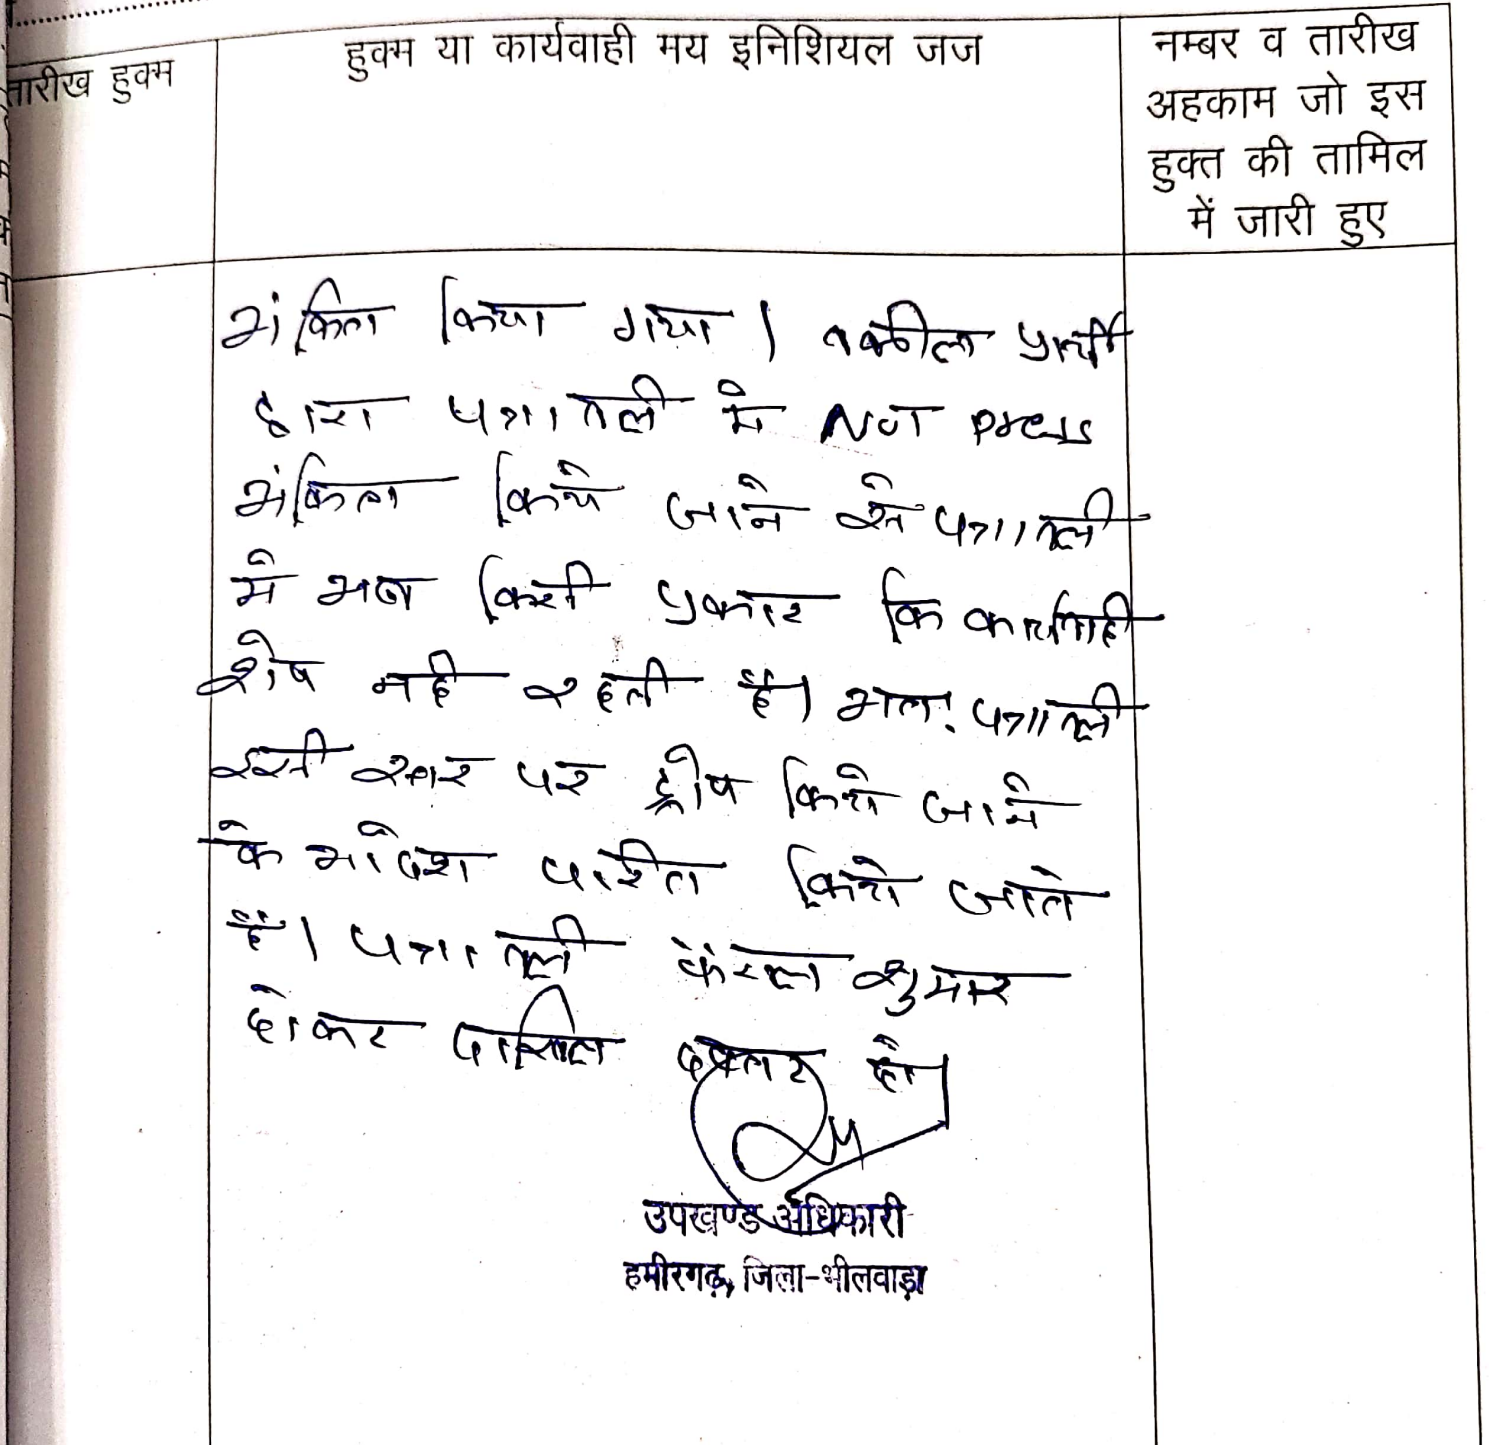 तारीख हुक्म
हुक्म या कार्यवाही मय इनिशियल जज
नम्बर व तारीख
अहकाम जो इस
हुक्त की तामिल
में जारी हुए
अंकित किया गया। वकील प्रार्थी
द्वारा पत्रावली मे NOT press
अंकित किये जाने से पत्रावली
मे अब किसी प्रकार कि कार्यवाही
शेष नही रहती है। अतः पत्रावली
इसी स्तर पर ड्रोप किये जाने
के आदेश पारित किये जाते
है। पत्रावली फैसल शुमार
होकर दाखिल दफ्तर हो।
उपखण्ड अधिकारी
हमीरगढ़, जिला-भीलवाड़ा